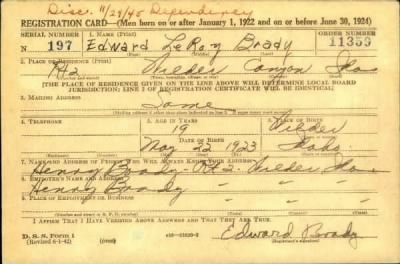 Disc. 11/29/45 Dependency
REGISTRATION CARD—(Men born on or after January 1, 1922 and on or before June 30, 1924)
SERIAL NUMBER 1. NAME (Print) ORDER NUMBER
197 Edward LeRoy Brady 11359
2. PLACE OF RESIDENCE (Print)
R#2 Wilder Canyon Ida
[THE PLACE OF RESIDENCE GIVEN ON THE LINE ABOVE WILL DETERMINE LOCAL BOARD
JURISDICTION; LINE 2 OF REGISTRATION CERTIFICATE WILL BE IDENTICAL]
3. MAILING ADDRESS
Same
4. TELEPHONE 5. AGE IN YEARS 6. PLACE OF BIRTH
19 Wilder
DATE OF BIRTH
May 22 1923 Idaho
7. NAME AND ADDRESS OF PERSON WHO WILL ALWAYS KNOW YOUR ADDRESS
Henry Brady - R#2 - Wilder Ida
8. EMPLOYER'S NAME AND ADDRESS
Henry Brady " " "
9. PLACE OF EMPLOYMENT OR BUSINESS
" " "
I AFFIRM THAT I HAVE VERIFIED ABOVE ANSWERS AND THAT THEY ARE TRUE.
D. S. S. Form 1
(Revised 6-1-42) (over) Edward Brady
(Registrant's signature)